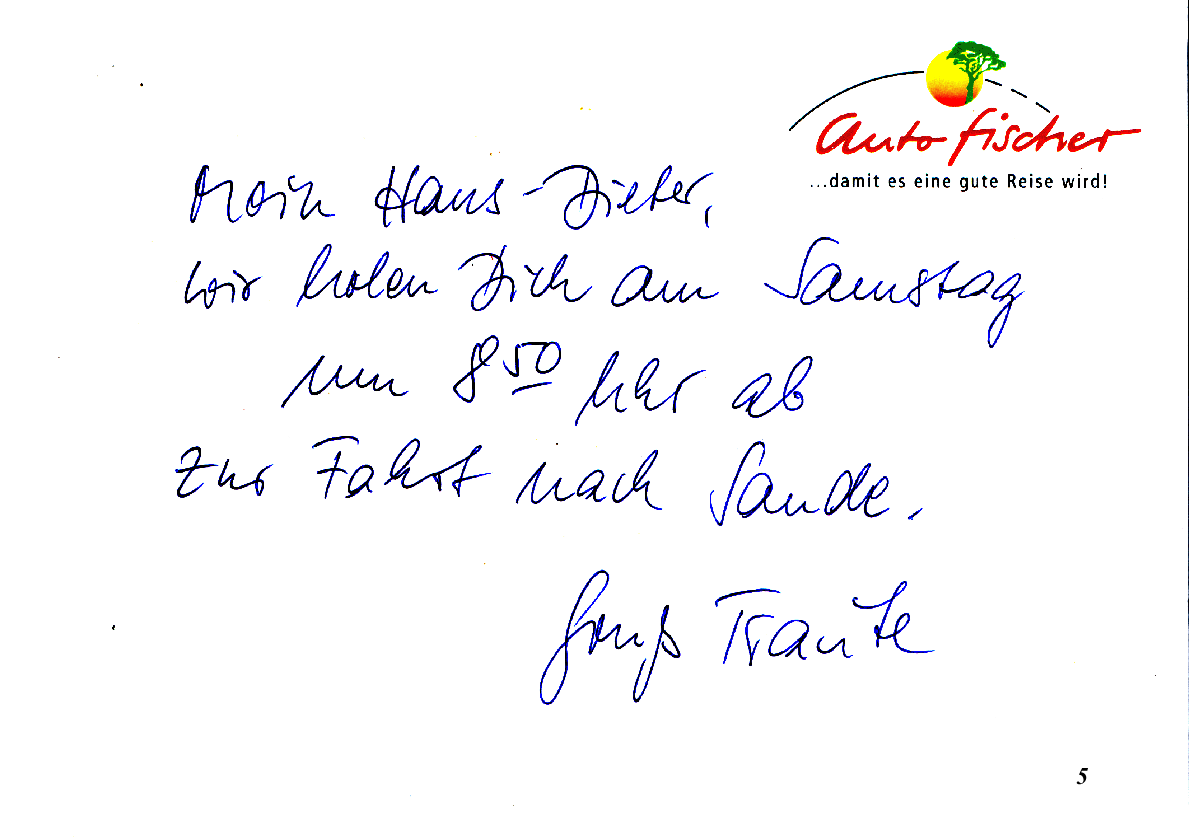 Auto fischer
...damit es eine gute Reise wird!
Moin Hans-Dieter,
wir holen Dich am Samstag
um 8 50 Uhr ab
zur Fahrt nach Sande.
Gruß Traute
5